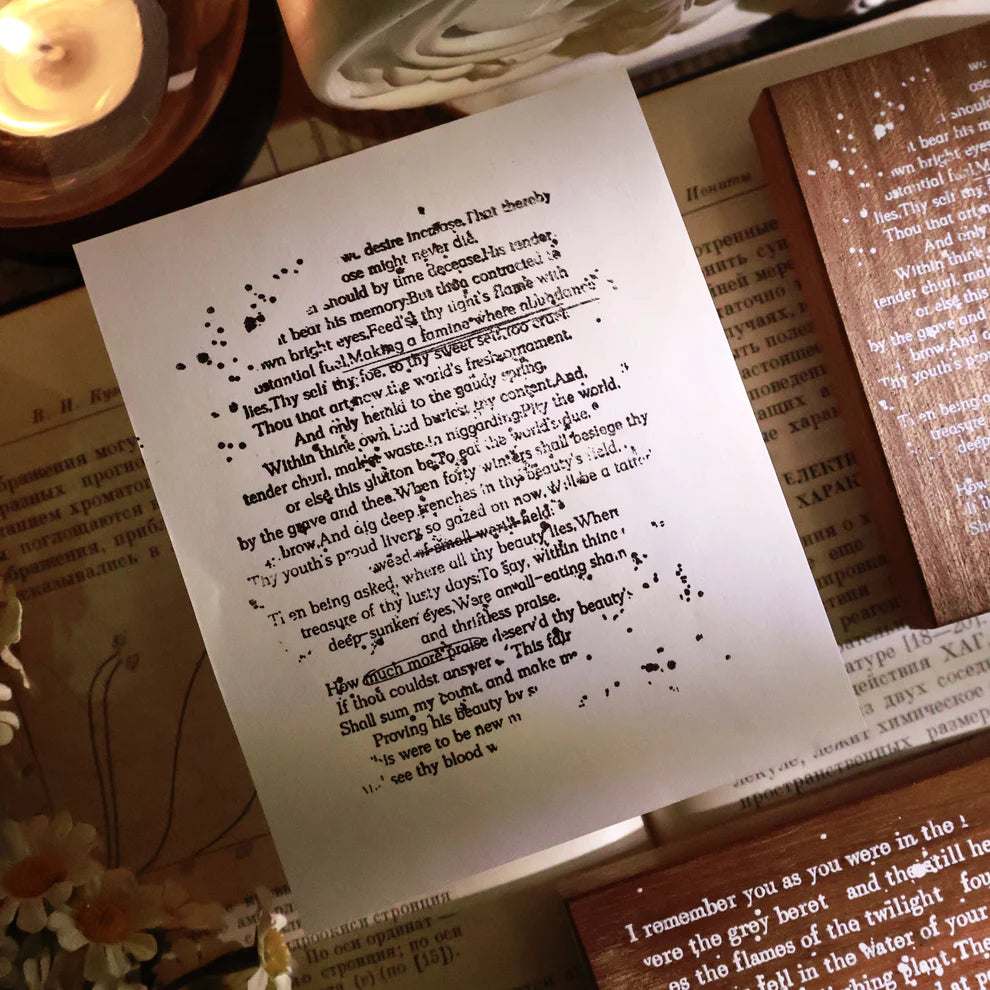 desire increase,That thereby
ose might never die,
should by time decease,His tender
t bear his memory:But thou contracted to
wn bright eyes,Feed'st thy light's flame with
ustantial fuel,Making a famine where abundance
lies,Thy self thy foe, to thy sweet self too cruel:
Thou that art now the world's fresh ornament,
And only herald to the gaudy spring,
Within thine own bud buriest thy content,And,
tender churl, makest waste in niggarding:Pity the world,
or else this glutton be,To eat the world's due,
by the grave and thee.When forty winters shall besiege thy
brow,And dig deep trenches in thy beauty's field,
Thy youth's proud livery, so gazed on now, Will be a tatter
weed of small worth held:
Then being asked, where all thy beauty lies,Where
treasure of thy lusty days;To say, within thine
deep-sunken eyes,Were an all-eating sham
and thriftless praise.
How much more praise deserv'd thy beauty's
If thou couldst answer 'This fair
Shall sum my count, and make m
Proving his beauty by s
is were to be new m
see thy blood w
ose
should
t bear his m
wn bright eyes
ustantial fuel,M
lies,Thy self thy
Thou that art now
And only
Within thine
tender churl, mak
or else this
by the grave and
brow,And
Thy youth's pro
Then being a
treasure
deep
How
If
Sh
I remember you as you were in the l
were the grey beret and the still he
es the flames of the twilight fou
fell in the Water of your
bing plant.The
Иониты
отренные
нить сущ
ней мере
статочно
лучаях,
ть полез
астояще
поведени
щих а
е хара
ЕЛЕКТИ
ХАРАК
ния о х
еще
ировка
твии
реаген
атуре [18—20
действия ХАГ
двух сосед
химическое
размер
лекуле, лежит
пространственных
В. И. Куз
бражения могу
разных прогно
танием хромато
поглощаются и
бражения, прибл
сказывались в
дроокиси стронция
По оси ординат —
стронция; по оси
(v) (по [15]).